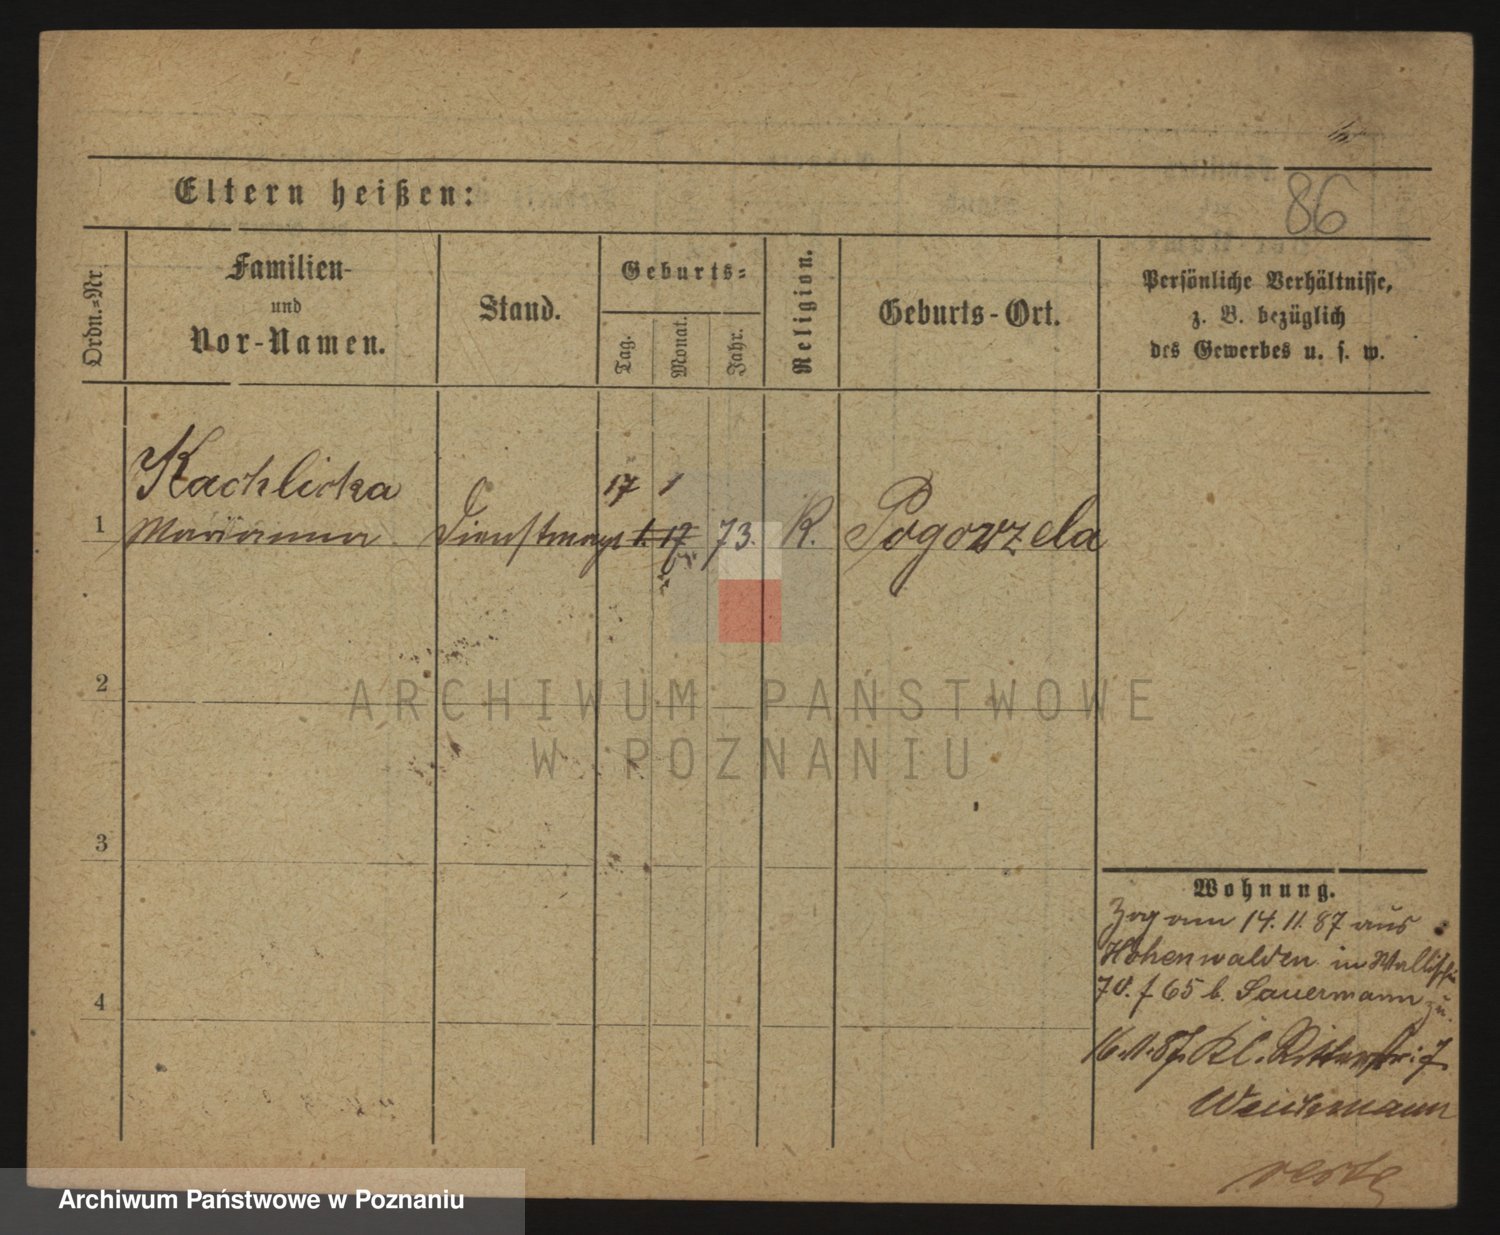 Eltern heißen:
86
Ordn.=Nr.
Familien-
und
Vor-Namen.
Stand.
Geburts=
Tag.
Monat.
Jahr.
Religion.
Geburts-Ort.
Persönliche Verhältnisse,
z. B. bezüglich
des Gewerbes u. s. w.
Kachlicka
17 1
1 Marianna Dienstmagd 1. 17 73. K. Pogorzela
2
ARCHIWUM PAŃSTWOWE
W POZNANIU
3
4
Wohnung.
Zog am 14. 11. 87 aus
Hohenwalden in Wallischei
70. f. 65 b. Sauermann zu.
16.11.87. Kl. Ritterstr. 7
verte
Archiwum Państwowe w Poznaniu